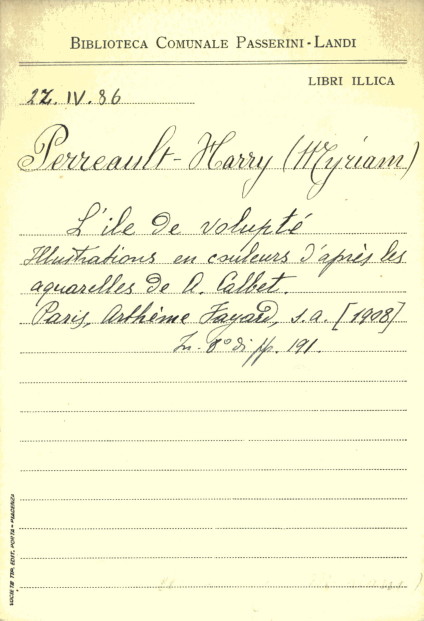 BIBLIOTECA COMUNALE PASSERINI-LANDI
LIBRI ILLICA
2Z. IV. 86
Perreault-Harry (Myriam)
L'ile de volupté
Illustrations en couleurs d'après les
aquarelles de A. Calbet.
Paris, Arthème Fayard, s. a. [1908]
In-8° di pp. 191.
SOCIETÀ TIP. EDIT. PORTA - PIACENZA